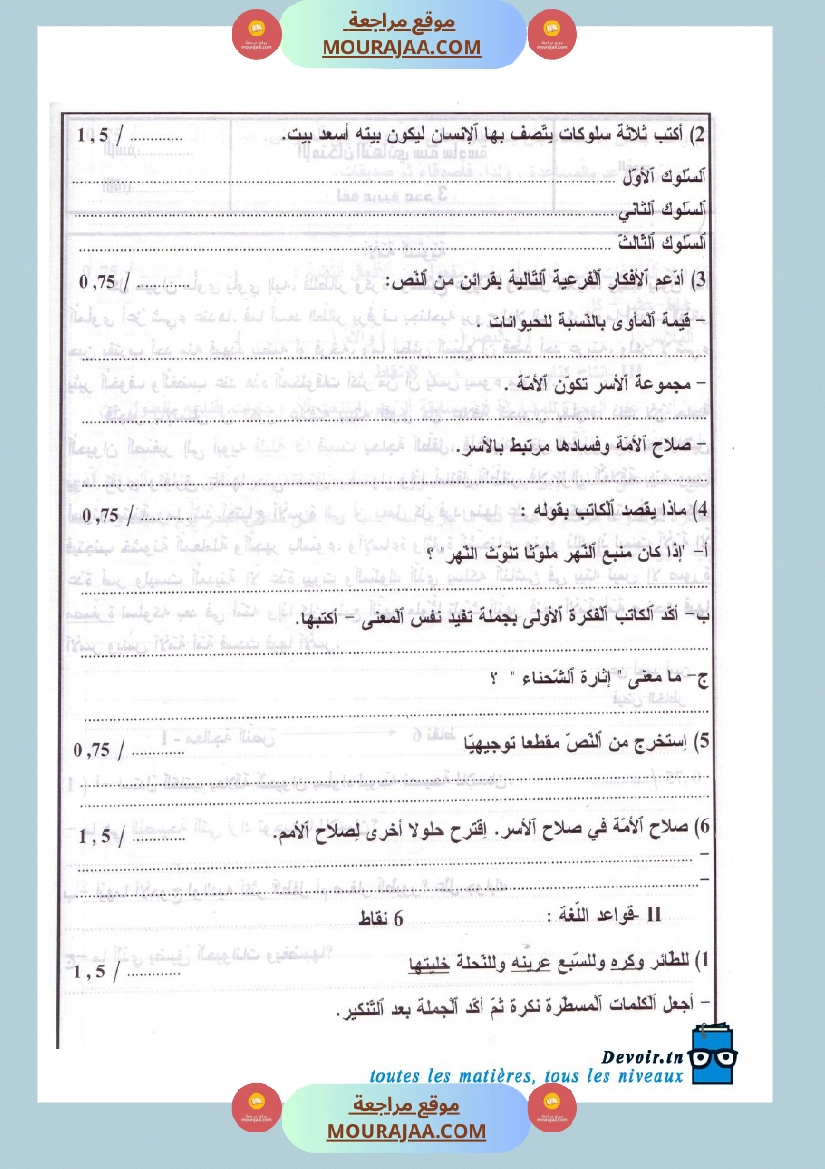 موقع مراجعة
MOURAJAA.COM
2) أكتب ثلاثة سلوكات يتّصف بها ٱلإنسان ليكون بيته أسعد بيت. ............. / 1,5
ٱلسّلوك ٱلأوّل ........................................
ٱلسّلوك ٱلثّاني ........................................
ٱلسّلوك ٱلثّالث ........................................
3) أدّعم ٱلأفكار ٱلفرعية ٱلتّالية بقرائن من ٱلنّص: ............. / 0,75
– قيمة ٱلمأوى بالنّسبة للحيوانات .
........................................
– مجموعة ٱلأسر تكوّن ٱلأمّة .
........................................
– صلاح ٱلأمّة وفسادها مرتبط بالأسر.
........................................
4) ماذا يقصد ٱلكاتب بقوله : ............. / 0,75
أ– "إذا كان منبع ٱلنّهر ملوّثا تلوّث ٱلنّهر" ؟
........................................
ب– أكّد ٱلكاتب ٱلفكرة ٱلأولى بجملة تفيد نفس ٱلمعنى – أكتبها.
........................................
ج– ما معنى " إثارة ٱلشّحناء " ؟
........................................
5) إستخرج من ٱلنّصّ مقطعا توجيهيّا ............. / 0,75
........................................
........................................
6) صلاح ٱلأمّة في صلاح ٱلأسر. اِقترح حلولا أخرى لِصلاح ٱلأمم. ............. / 1,5
– ........................................
– ........................................
II -قواعد ٱللّغة : 6 نقاط
1) للطّائر وكره وللسّبع عرينه وللنّحلة خليتها ............. / 1,5
– أجعل ٱلكلمات ٱلمسطّرة نكرة ثمّ أكّد ٱلجملة بعد ٱلتّنكير.
Devoir.tn
toutes les matières, tous les niveaux
موقع مراجعة
MOURAJAA.COM